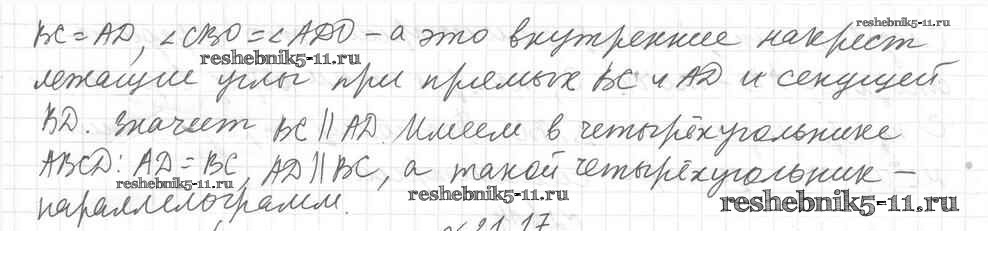 reshebnik5-11.ru
BC = AD, ∠CBO = ∠ADO – а это внутренние накрест
reshebnik5-11.ru
лежащие углы при прямых BC и AD и секущей
BD. Значит BC || AD. Имеем в четырёхугольнике
ABCD: AD = BC, AD || BC, а такой четырёхугольник –
reshebnik5-11.ru
reshebnik5-11.ru
параллелограмм.
reshebnik5-11.ru
21.17